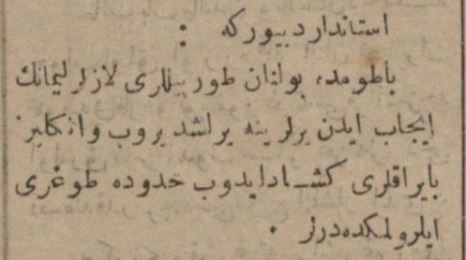 استاندارد بیورکه :
باطومده بولنان طورپیللری لازلر لیمانك
ایجاب ایدن یرلرینه یرلشدیروب وانکلیز
بایراقلری کشـادایدوب حدوده طوغری
ایلرولمکده درلر .